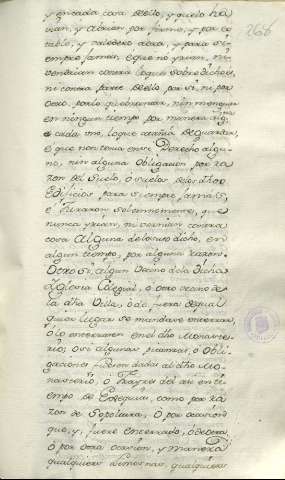 y en cada cosa dello, y que lo ha
vian, y abrian por firme, y por es
table, y valedero agora, y para si
empre jamas, e que no yrian, ni
vendrian contra lo que sobre dicho es,
ni contra parte dello por sí, ni por
otro, por lo quebrantar, nin menguar
en ningun tiempo por manera alg
cada uno, lo que atañia de guardar,
e que non tenia en si Derecho algu
no, nin alguna Obligacion, por ra
zon del suelo, o suelos de los dhos
Edificios, para siempre jamas,
é juraron solennemente, que
nunca yrian, ni vernian contra
cosa Alguna de lo suso dicho, en
algun tiempo, por alguna razon.
Otro si, algun Vecino de la dicha
Yglesia Collegial, o otro vecino de
la dha Villa, o de fuera de qual
quier lugar se mandare enterrar,
ó lo enterraren en el dho Monaste
rio; o si algunas pitanzas, ó Obli
gaciones fueren dadas al dho Mo
nasterio, ó Frayres del asi en ti
empo de Exsequias, como por ra
zon de Sepoltura, ó por ocasion
que, y fuere enterrado,
ó por otra ocasion, y manera
qualquiera Limosnas, qualquiera
266